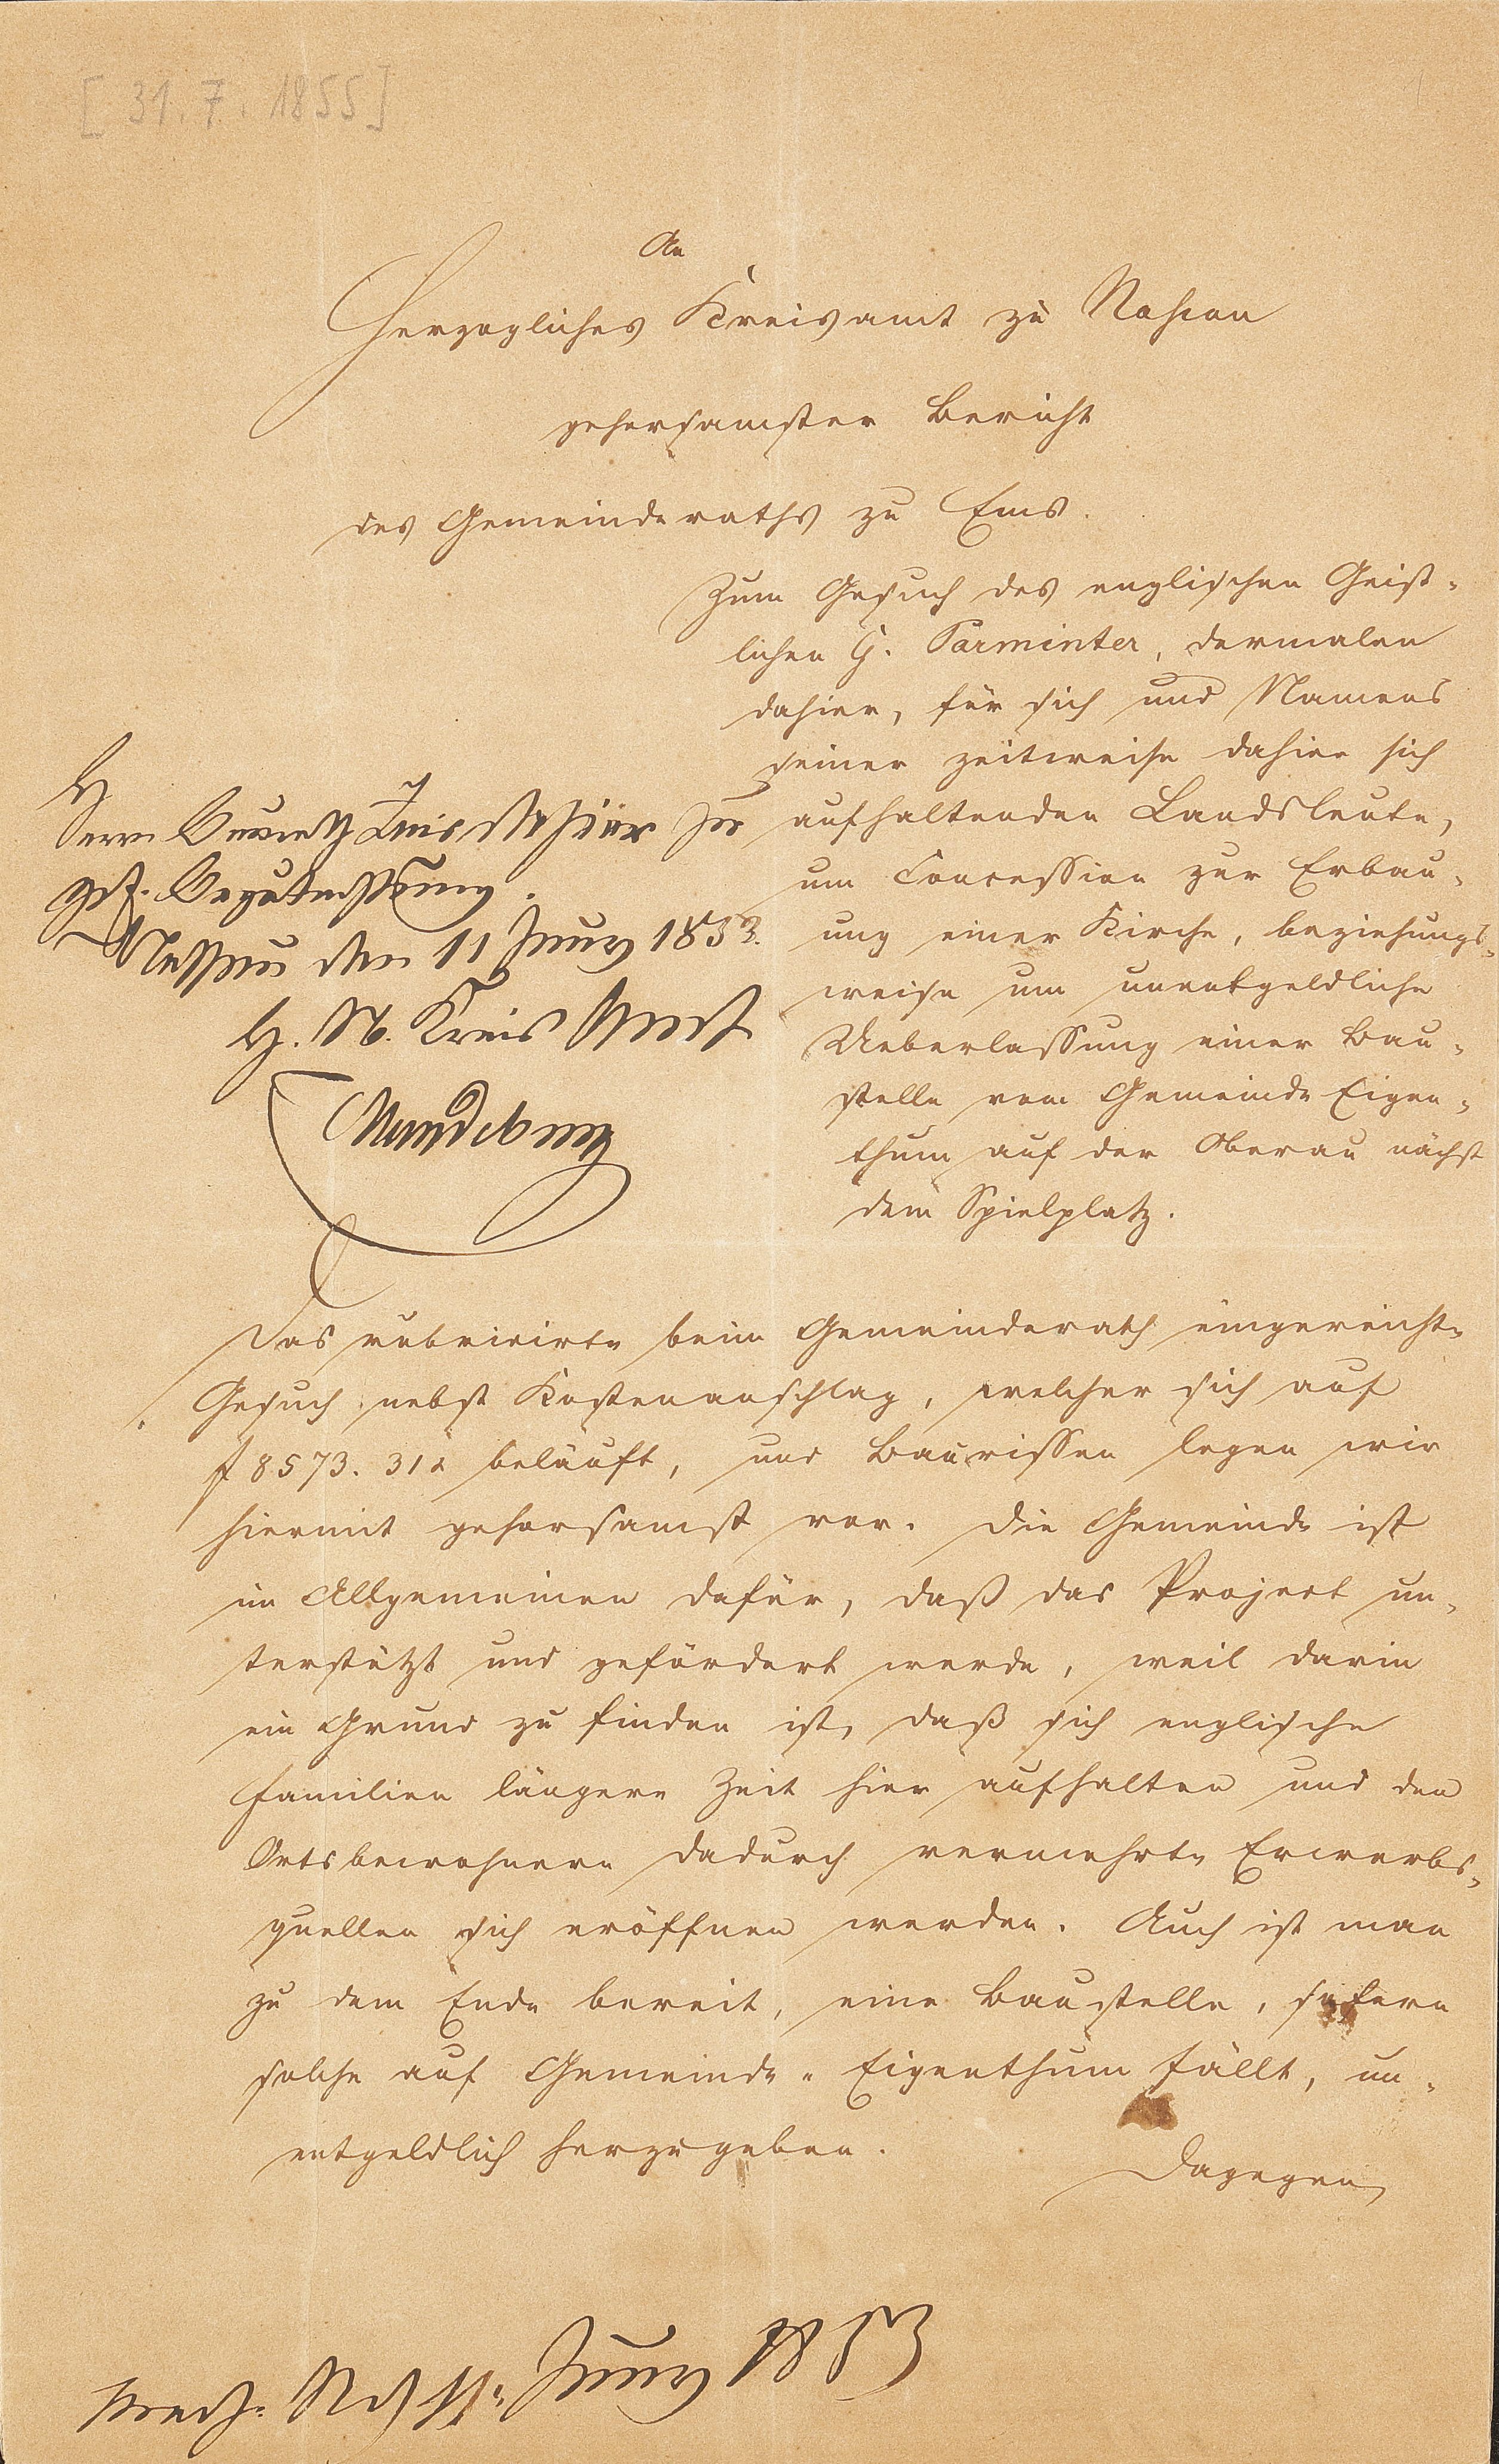 [31.7.1855]
An
Herzogliches Kreisamt zu Nassau
gehorsamster Bericht
des Gemeinderaths zu Ems.
Zum Gesuch des englischen Geist-
lichen G. Parminter, dermalen
dahier, für sich und Namens
seiner zeitweise dahier sich
aufhaltenden Landsleute,
um Concession zur Erbau-
ung einer Kirche, beziehungs-
weise um unentgeldliche
Ueberlassung einer Bau-
stelle vom Gemeinde Eigen-
thum auf der Oberau nächst
dem Spielplatz.
Herrn zur
gef. Begutachtung.
Nassau den 11 Juny 1853.
H. N. Kreis Amt
Das rubricirte beim Gemeinderath eingereichte
Gesuch nebst Kostenanschlag, welcher sich auf
f 8573. 31x beläuft, und Baurissen legen wir
hiermit gehorsamst vor. Die Gemeinde ist
im Allgemeinen dafür, daß das Project un-
terstützt und gefördert werde, weil darin
ein Grund zu finden ist, daß sich englische
Familien längere Zeit hier aufhalten und den
Ortsbewohnern dadurch vermehrte Erwerbs-
quellen sich eröffnen werden. Auch ist man
zu dem Ende bereit, eine Baustelle, sofern
solche auf Gemeinde-Eigenthum fällt, un-
entgeldlich herzugeben.
Dagegen
11. Juny 1853